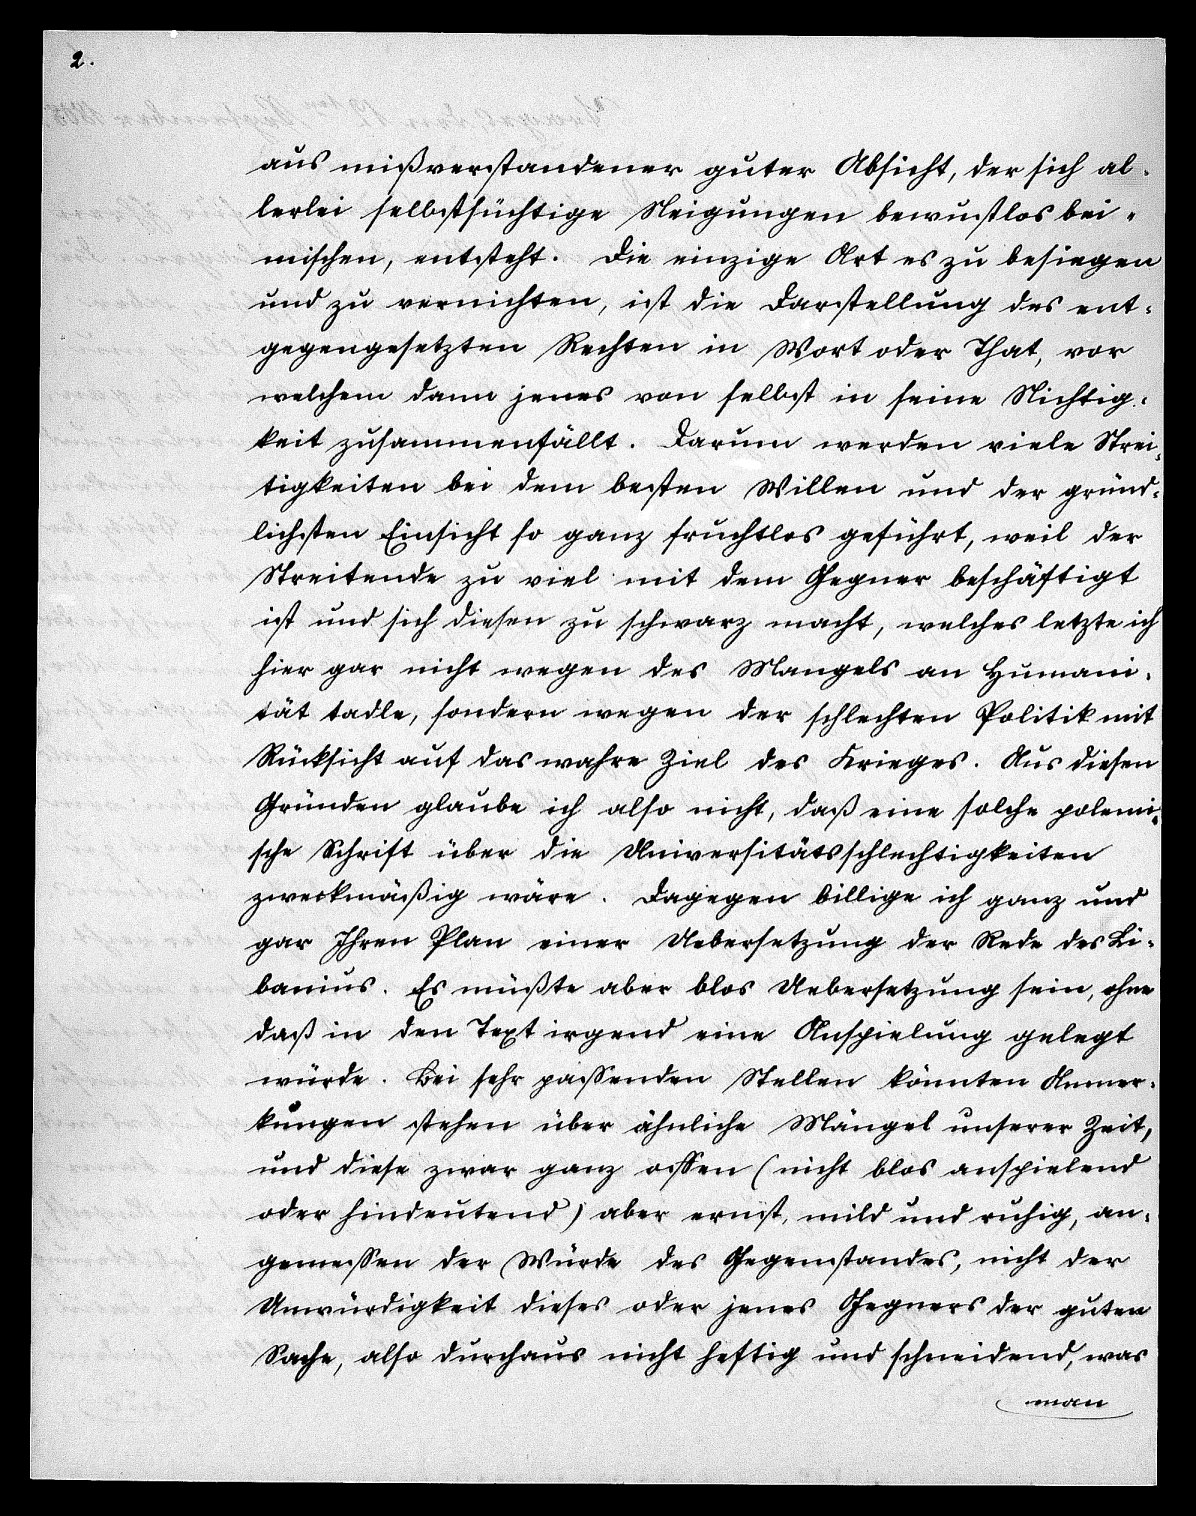 2.
aus mißverstandener guter Absicht, der sich al-
lerlei selbstsüchtige Neigungen bewustlos bei-
mischen, entsteht. Die einzige Art es zu besiegen
und zu vernichten, ist die Darstellung des ent-
gegengesetzten Rechten in Wort oder That, vor
welchem dann jenes von selbst in seine Nichtig-
keit zusammenfällt. Darum werden viele Strei-
tigkeiten bei dem besten Willen und der gründ-
lichsten Einsicht so ganz fruchtlos geführt, weil der
Streitende zu viel mit dem Gegner beschäftigt
ist und sich diesen zu schwarz macht, welches letzte ich
hier gar nicht wegen des Mangels an Humani-
tät tadle, sondern wegen der schlechten Politik mit
Rücksicht auf das wahre Ziel des Krieges. Aus diesen
Gründen glaube ich also nicht, daß eine solche polemi-
sche Schrift über die Universitätsschlechtigkeiten
zweckmäßig wäre. Dagegen billige ich ganz und
gar Ihren Plan einer Uebersetzung der Rede des Li-
banius. Es müßte aber blos Uebersetzung sein, ohne
daß in den Text irgend eine Anspielung gelegt
würde. Bei sehr passenden Stellen könnten Anmer-
kungen stehen über ähnliche Mängel unserer Zeit,
und diese zwar ganz offen (nicht blos anspielend
oder hindeutend) aber ernst, mild und ruhig, an-
gemessen der Würde des Gegenstandes, nicht der
Unwürdigkeit dieses oder jenes Gegners der guten
Sache, also durchaus nicht heftig und schneidend, was
man